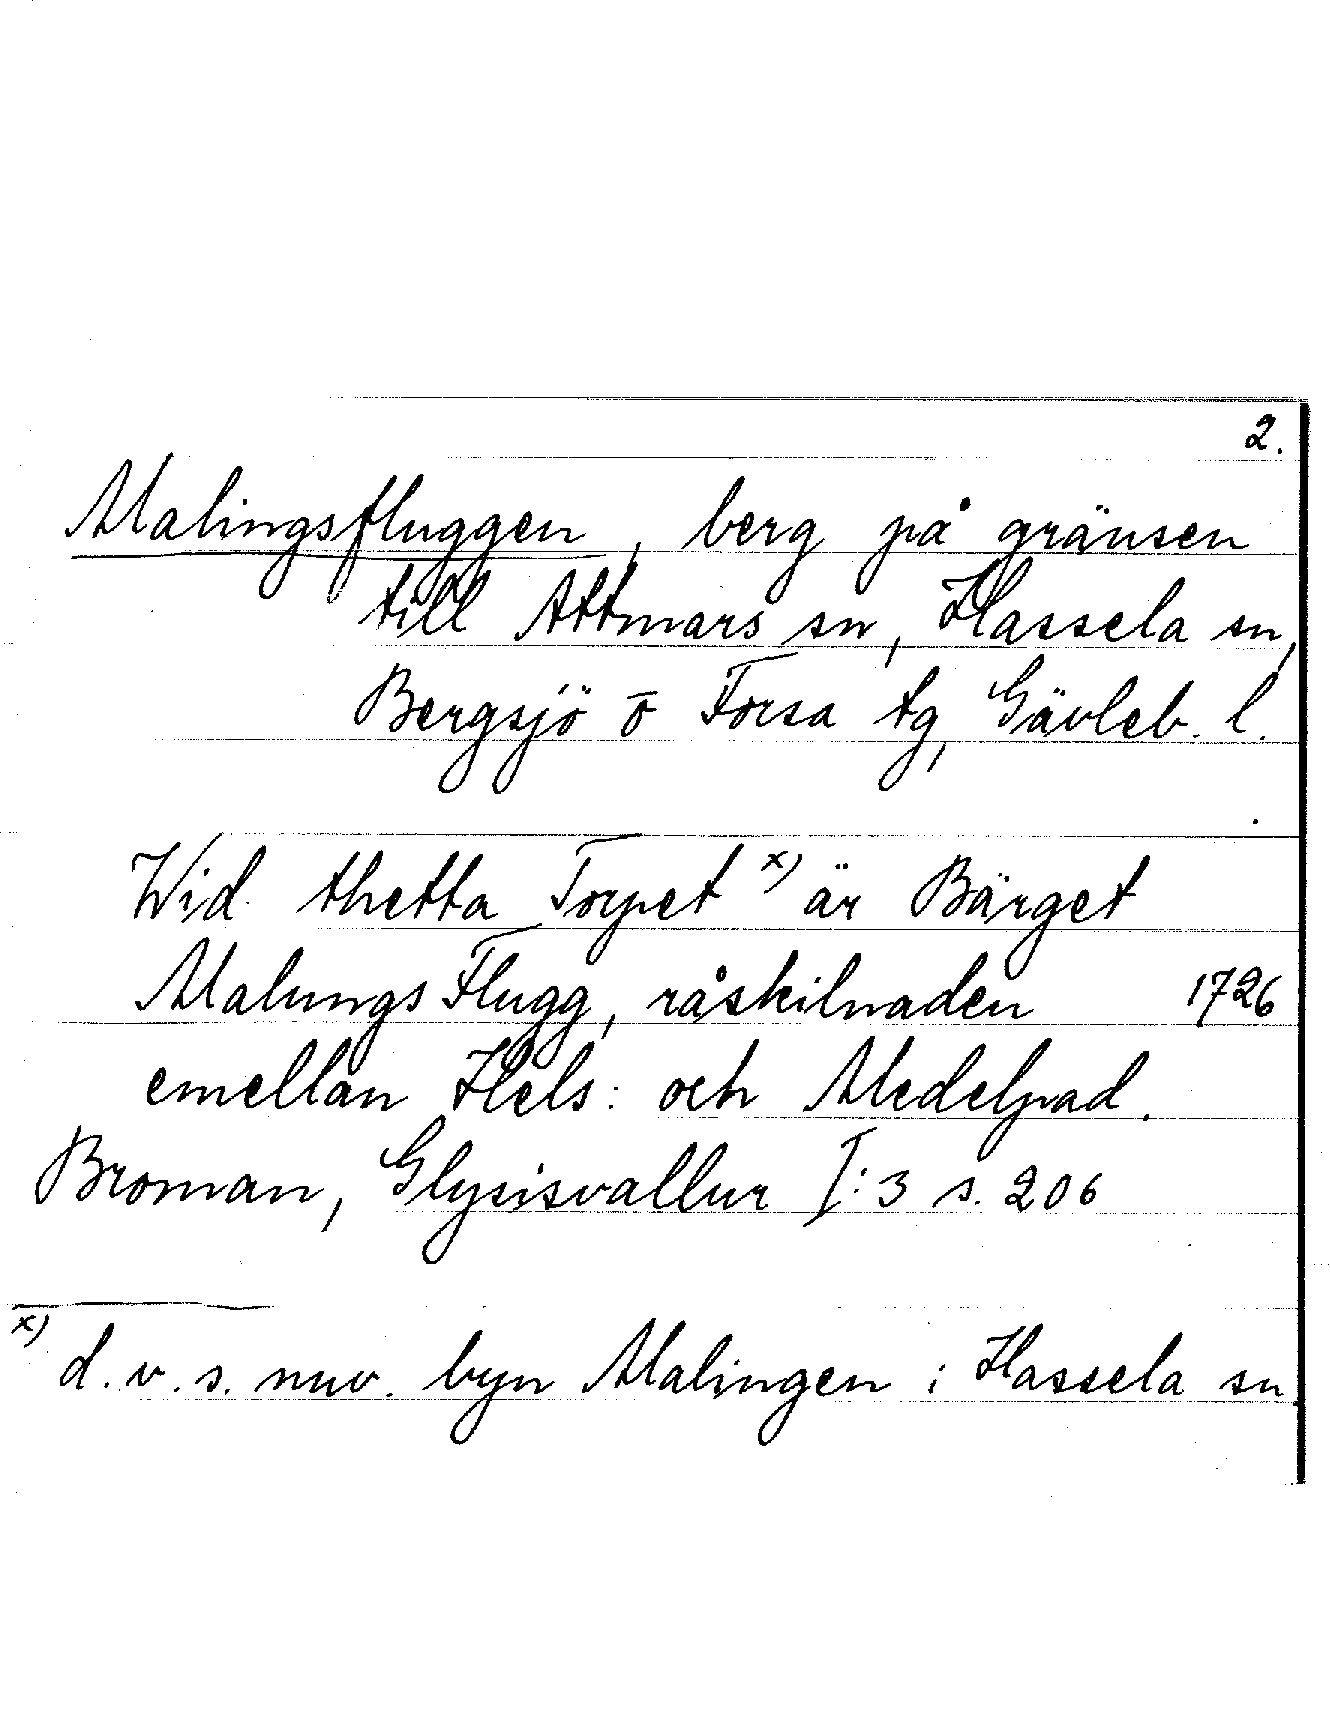 2.
Malingsfluggen, berg på gränsen
till Attmars sn, Hassela sn,
Bergsjö o Forsa tg, Gävleb. l.
Wid thetta Torpet x) är Bärget
Malungs Flugg, råskilnaden 1726
emellan Hels: och Medelpad.
Broman, Glysisvallur I:3 s. 206
x) d.v.s. nuv. byn Malingen i Hassela sn